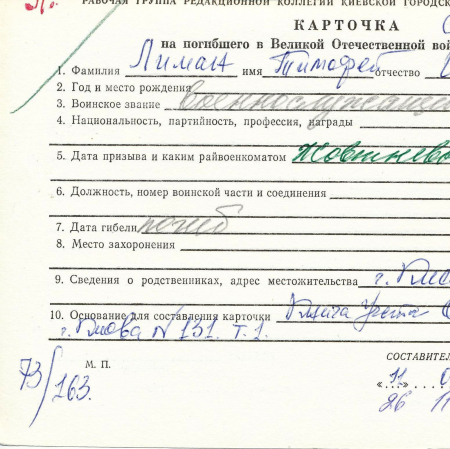 РАБОЧАЯ ГРУППА РЕДАКЦИОННОЙ КОЛЛЕГИИ КИЕВСКОЙ ГОРОДСК
КАРТОЧКА
на погибшего в Великой Отечественной вой
1. Фамилия Лиман имя Тимофей отчество
2. Год и место рождения
3. Воинское звание военнослужащий
4. Национальность, партийность, профессия, награды
5. Дата призыва и каким райвоенкоматом Жовтнев
6. Должность, номер воинской части и соединения
7. Дата гибели погиб
8. Место захоронения
9. Сведения о родственниках, адрес местожительства г.
10. Основание для составления карточки Книга учета
г. Киева N 131. т.1.
СОСТАВИТЕЛ
М. П.
73/163.
"11
26 11